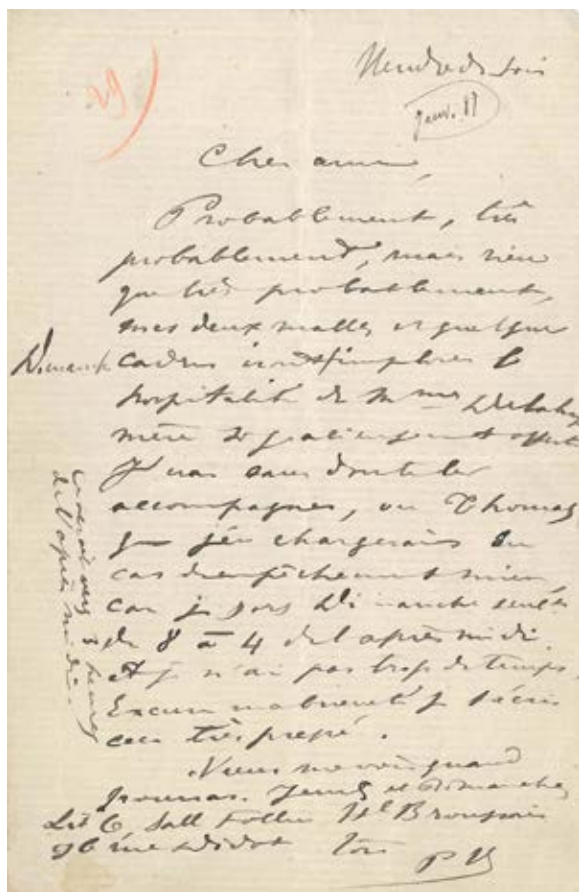 29
Vendredi soir
janv. 87
Cher ami,
Probablement, très
probablement, mais rien
que très probablement,
mes deux malles et quelques
Dimanche cadres iront simplores l
hospitalité de Mme Delahaye
mère si gracieusement offerte
J'irai sans doute les
accompagner, ou Thomas
que j'en chargerais en
cas d'empêchement mien,
car je sors Dimanche
de 8 à 4 de l'après midi.
Et je n'ai pas trop de temps.
Excuse ma brièveté je t'écris
ceci très pressé.
Viens me voir quand
pourras. Jeudis et Dimanches
Lit 6, Salle Follin Hal Broussais
96 rue Didot Ton
PV
ce serait vers 3 heures
de l'après midi.